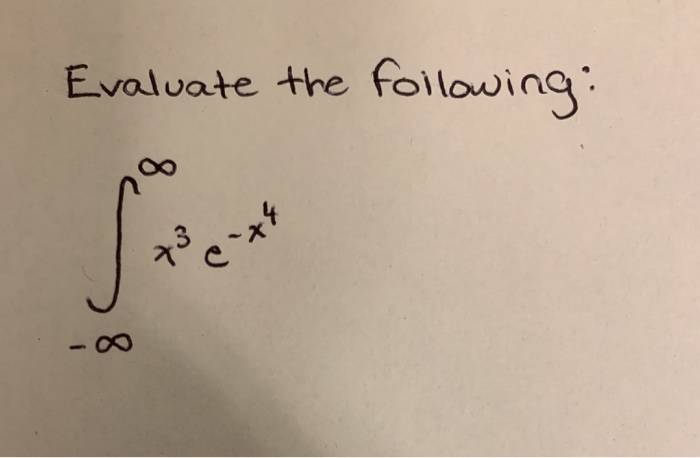 Evaluate the following:
∞
∫ x³ e^{-x⁴}
-∞